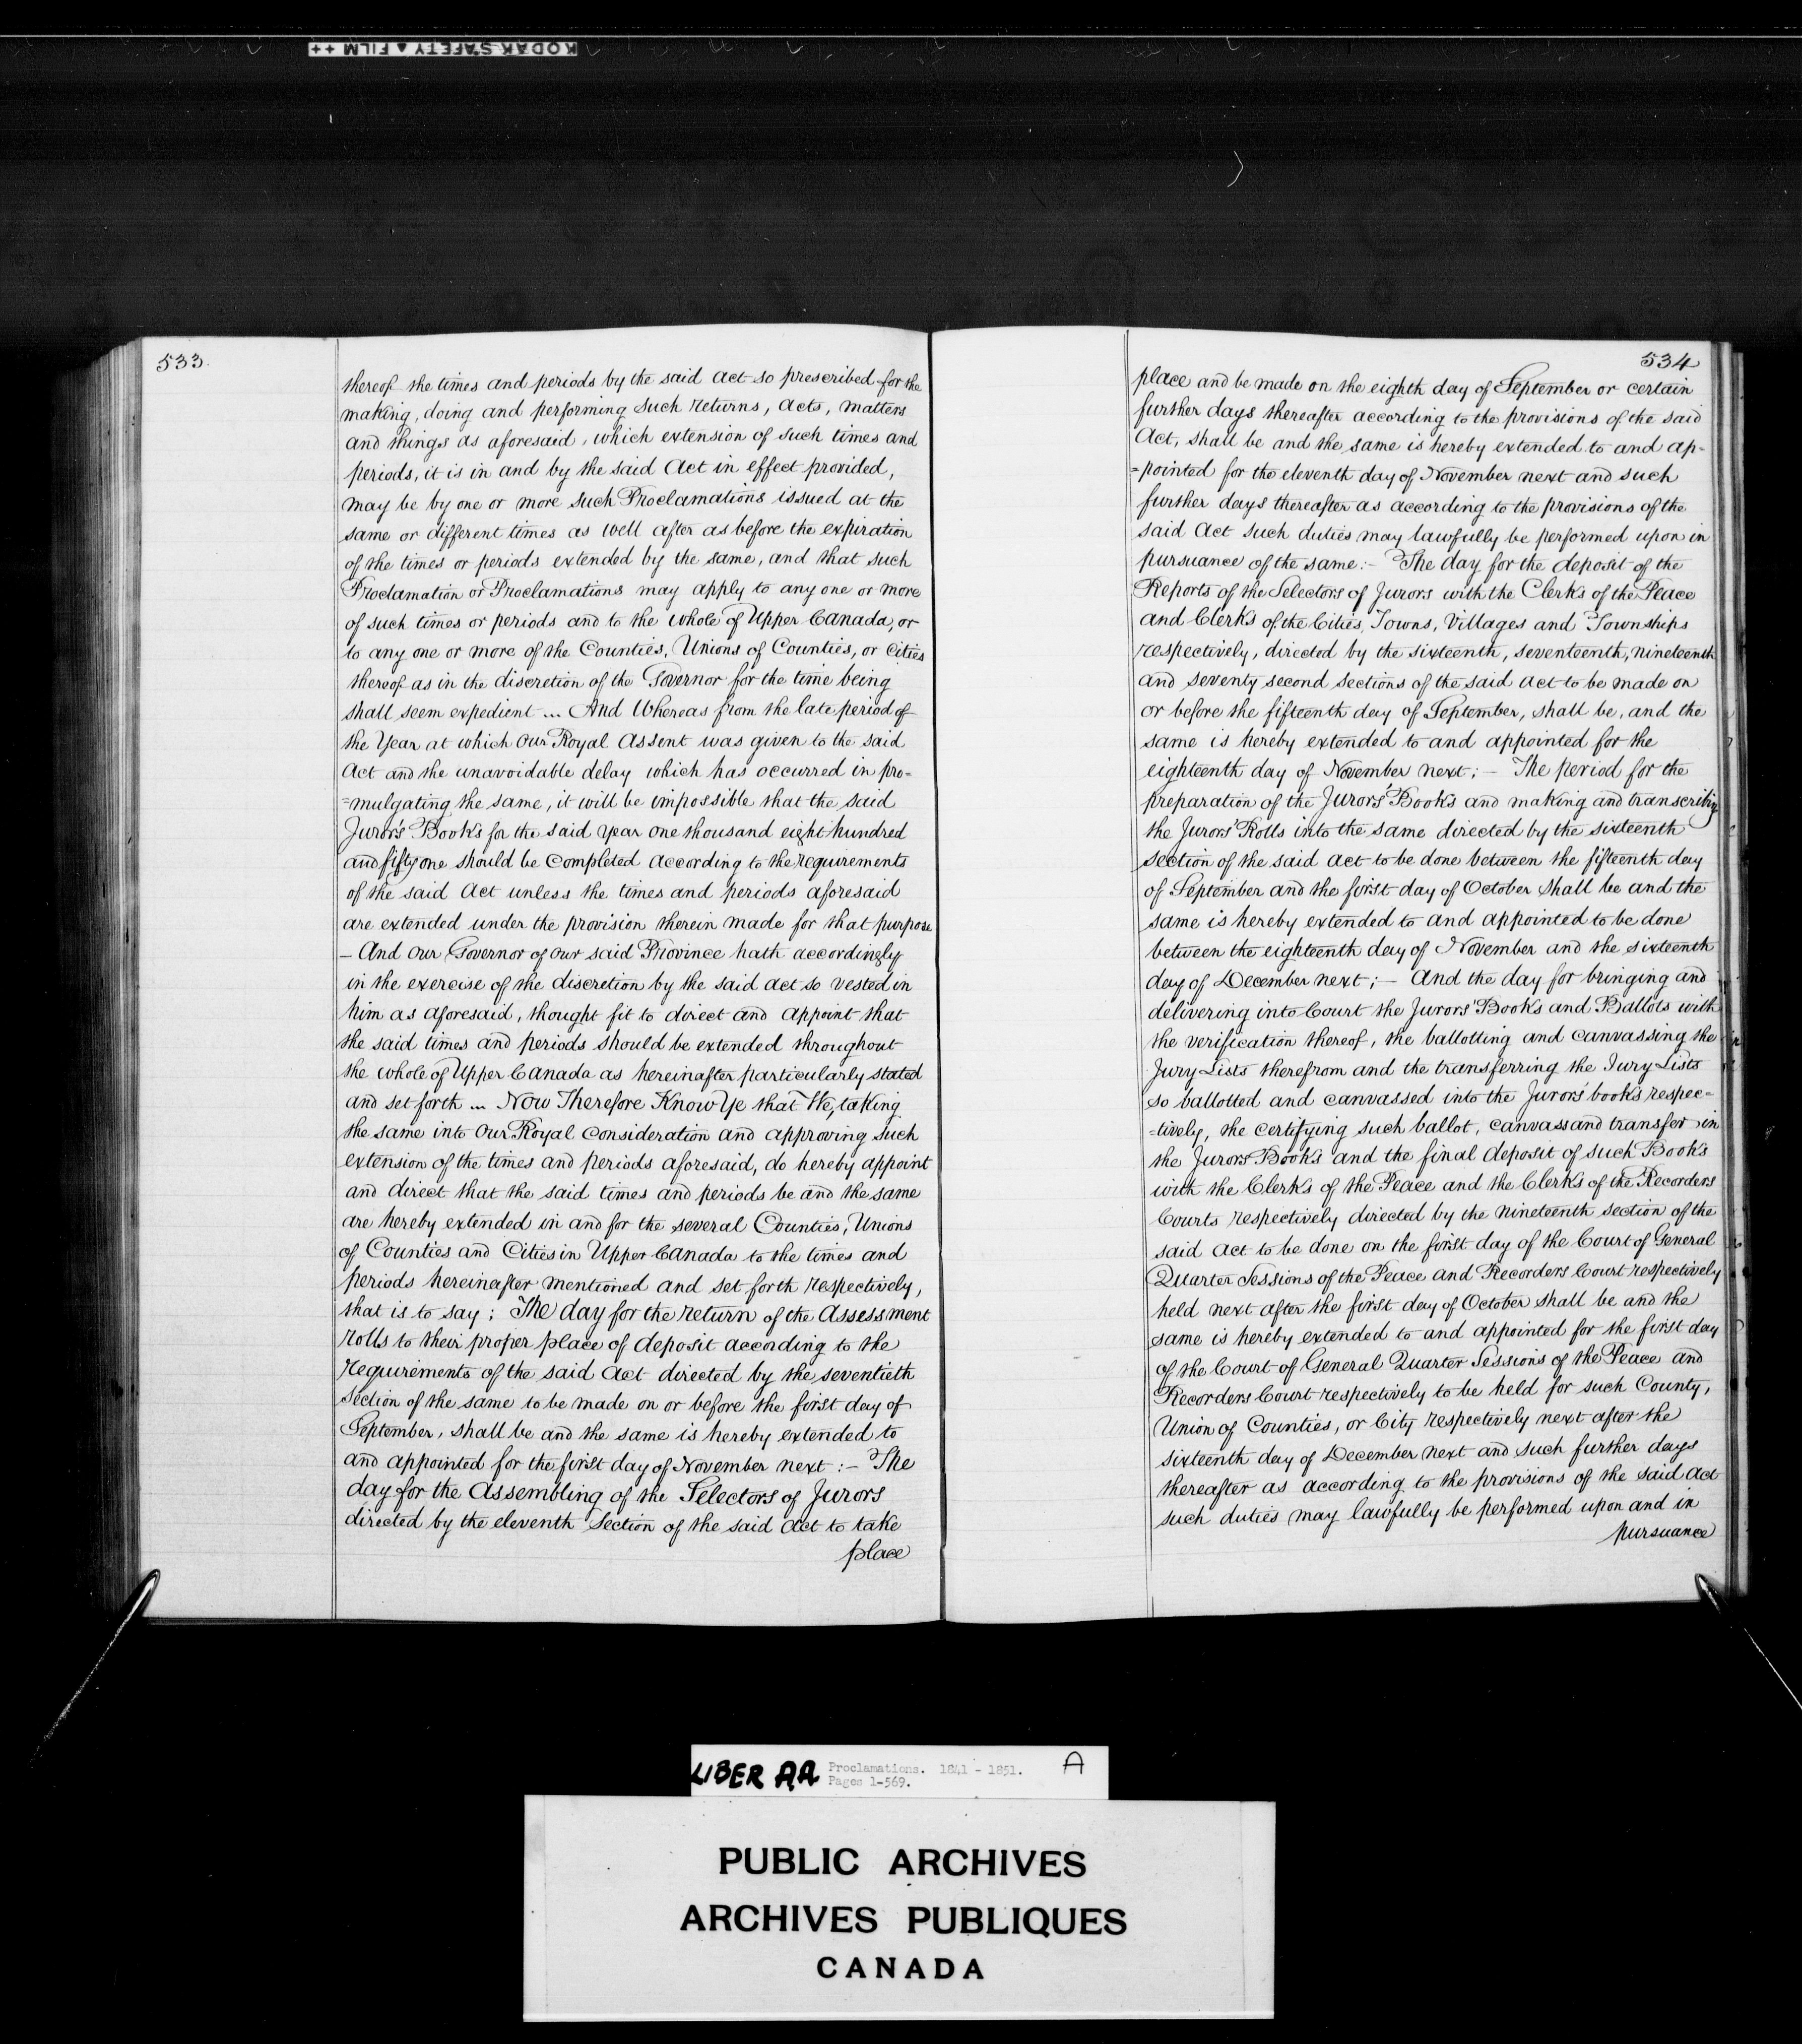 KODAK SAFETY ▲ FILM ++
533.
thereof the times and periods by the said Act so prescribed for the
making, doing and performing such returns, acts, matters
and things as aforesaid, which extension of such times and
periods, it is in and by the said Act in effect provided,
may be by one or more such Proclamations issued at the
same or different times as well after as before the expiration
of the times or periods extended by the same, and that such
Proclamation or Proclamations may apply to any one or more
of such times or periods and to the whole of Upper Canada, or
to any one or more of the Counties, Unions of Counties, or Cities
thereof as in the discretion of the Governor for the time being
shall seem expedient ... And Whereas from the late period of
the Year at which Our Royal Assent was given to the said
Act and the unavoidable delay which has occurred in pro=
=mulgating the same, it will be impossible that the said
Juror's Books for the said year one thousand eight hundred
and fifty one should be completed according to the requirements
of the said Act unless the times and periods aforesaid
are extended under the provision therein made for that purpose
– And Our Governor of Our said Province hath accordingly
in the exercise of the discretion by the said Act so vested in
him as aforesaid, thought fit to direct and appoint that
the said times and periods should be extended throughout
the whole of Upper Canada as hereinafter particularly stated
and set forth ... Now Therefore Know Ye that We, taking
the same into Our Royal consideration and approving such
extension of the times and periods aforesaid, do hereby appoint
and direct that the said times and periods be and the same
are hereby extended in and for the several Counties, Unions
of Counties and Cities in Upper Canada to the times and
periods hereinafter mentioned and set forth respectively,
that is to say; The day for the return of the Assessment
rolls to their proper place of deposit according to the
requirements of the said Act directed by the seventieth
section of the same to be made on or before the first day of
September, shall be and the same is hereby extended to
and appointed for the first day of November next :– The
day for the Assembling of the Selectors of Jurors
directed by the eleventh section of the said Act to take
place
534
place and be made on the eighth day of September or certain
further days thereafter according to the provisions of the said
Act, shall be and the same is hereby extended to and ap=
=pointed for the eleventh day of November next and such
further days thereafter as according to the provisions of the
said Act such duties may lawfully be performed upon in
pursuance of the same :– The day for the deposit of the
Reports of the Selectors of Jurors with the Clerks of the Peace
and Clerks of the Cities, Towns, Villages and Townships
respectively, directed by the sixteenth, seventeenth, nineteenth
and seventy second sections of the said Act to be made on
or before the fifteenth day of September, shall be, and the
same is hereby extended to and appointed for the
eighteenth day of November next; – The period for the
preparation of the Jurors' Books and making and transcribing
the Jurors' Rolls into the same directed by the sixteenth
section of the said Act to be done between the fifteenth day
of September and the first day of October shall be and the
same is hereby extended to and appointed to be done
between the eighteenth day of November and the sixteenth
day of December next; – And the day for bringing and
delivering into Court the Jurors' Books and Ballots with
the verification thereof, the ballotting and canvassing the
Jury Lists therefrom and the transferring the Jury Lists
so ballotted and canvassed into the Jurors' books respec=
-tively, the certifying such ballot, canvass and transfer in
the Jurors' Books and the final deposit of such Books
with the Clerks of the Peace and the Clerks of the Recorders
Courts respectively directed by the nineteenth section of the
said Act to be done on the first day of the Court of General
Quarter Sessions of the Peace and Recorders Court respectively
held next after the first day of October shall be and the
same is hereby extended to and appointed for the first day
of the Court of General Quarter Sessions of the Peace and
Recorders Court respectively to be held for such County,
Union of Counties, or City respectively next after the
sixteenth day of December next and such further days
thereafter as according to the provisions of the said Act
such duties may lawfully be performed upon and in
pursuance
LIBER AA Proclamations. 1841 - 1851. A
Pages 1-569.
PUBLIC ARCHIVES
ARCHIVES PUBLIQUES
CANADA